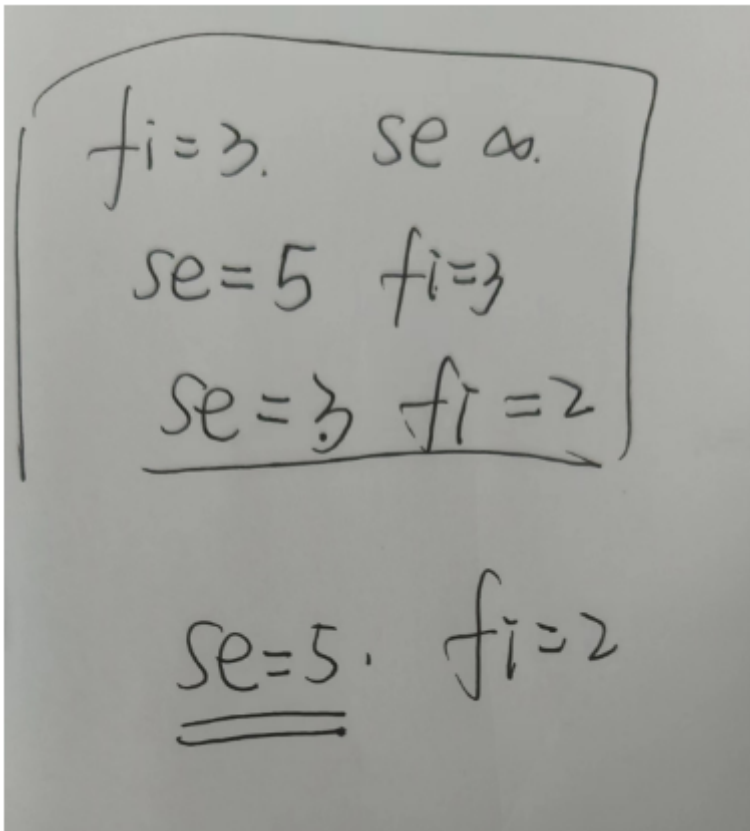 fi=3. se ∞.
se=5 fi=3
se=3 fi=2
se=5. fi=2